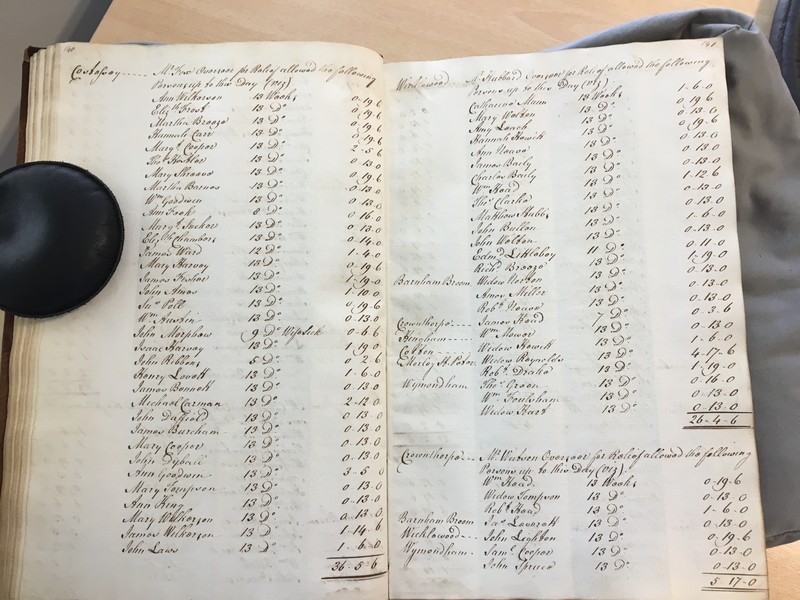 140
Costessey ---- Mr. Fox Overseer for Relief allowed the following
Persons up to this Day (viz)
Ann Wilkerson 13 Weeks 0-19-6
Eliz.th Frost 13 Do. 0-19-6
Martha Breeze 13 Do. 0-19-6
Hannah Carr 13 Do.
Mary Cooper 13 Do. 2-5-6
Thos. Hostler 13 Do. 0-13-0
Mary Shreeve 13 Do.
Martha Barnes 13 Do. 0-13-0
Wm. Goodwin 13 Do. 0-13-0
Ann Cook 8 Do. 0-16-0
Mary 13 Do. 0-13-0
Eliz.th Chambers 13 Do. 0-14-0
James Ward 12 Do. 1-4-0
Mary Harvey 13 Do. 0-19-6
James 13 Do. 1-19-0
John Amos 13 Do. 1-10-0
Sus. Pell 13 Do. 0-19-6
Wm. Austin 13 Do. 0-13-0
John Morphew 9 Do. Wife Sick 0-6-6
Isaac Harvey 13 Do. 1-19-0
John Ribbons 5 Do. 0-2-6
Henry Lovett 13 Do. 1-6-0
James Bennett 13 Do. 0-13-0
Michael Carman 13 Do. 2-12-0
John 13 Do. 0-13-0
James Burcham 13 Do. 0-13-0
Mary Cooper 13 Do. 0-13-0
John Dyball 13 Do. 0-13-0
Ann Goodwin 13 Do. 3-5-0
Mary Tompson 13 Do. 0-13-0
Ann King 13 Do. 0-13-0
Mary Wilkerson 13 Do. 0-13-0
James Wilkerson 13 Do. 1-14-6
John Laws 13 Do. 1-6-0
36-5-6
141
Wicklewood Mr. Hubbard Overseer for Relief allowed the following
Persons up to this Day (viz)
Catharine Mann 13 Weeks 1-6-0
Mary Welton 13 Do. 0-19-6
Amy Leach 13 Do. 0-13-0
Hannah Howik 13 Do. 0-19-6
Ann Neave 13 Do. 0-13-0
James Baily 13 Do. 0-13-0
Charles Baily 13 Do. 1-12-6
Wm. Head 13 Do. 0-13-0
Thos. Clarke 13 Do. 0-13-0
Matthew Hubbs 13 Do. 1-6-0
John Bullen 13 Do. 0-13-0
John Welton 13 Do.
Edmd. Littleboy 11 Do. 0-11-0
Richd. Breeze 13 Do. 1-19-0
Barnham Broom Widow Norton 13 Do. 0-13-0
Amos Miller 13 Do. 0-13-0
Robt. Neave 13 Do. 0-13-0
Crownthorpe --- James Head 7 Do. 0-3-6
Hingham --- Wm. Mower 13 Do. 0-13-0
Colton --- Widow Howik 13 Do. 1-6-0
Morley St. Peter Widow Reynolds 13 Do. 4-17-6
Robt. Drake 13 Do. 1-19-0
Wymondham Thos. Green 13 Do. 0-16-0
Wm. 13 Do. 0-13-0
Widow Hart 13 Do. 0-13-0
26-4-6
Crownthorpe --- Mr. Watson Overseer for Relief allowed the following
Persons up to this Day (viz)
Wm. Head 13 Weeks 0-19-6
Widow Tompson 13 Do. 0-13-0
Robt. Head 13 Do. 1-6-0
Barnham Broom Jas. Leverett 13 Do. 0-13-0
Wicklewood --- John Leighton 13 Do. 0-19-6
Wymondham --- Saml. Cooper 13 Do. 0-13-0
John Spruce 13 Do. 0-13-0
5-17-0